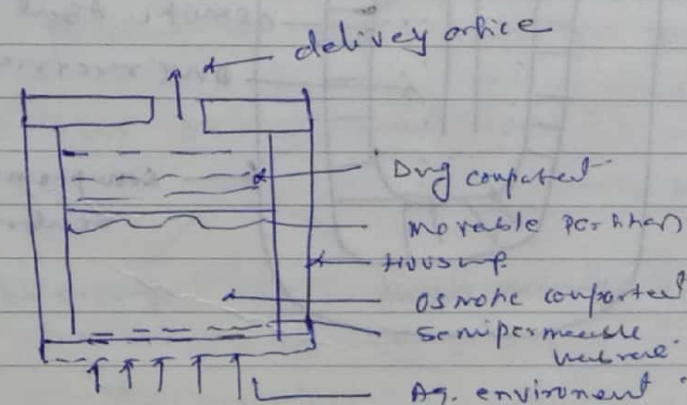 delivey orfice
Drug compatment
movable partition
Housing
osmotic compartment
semipermeable
membrane
Aq. environment